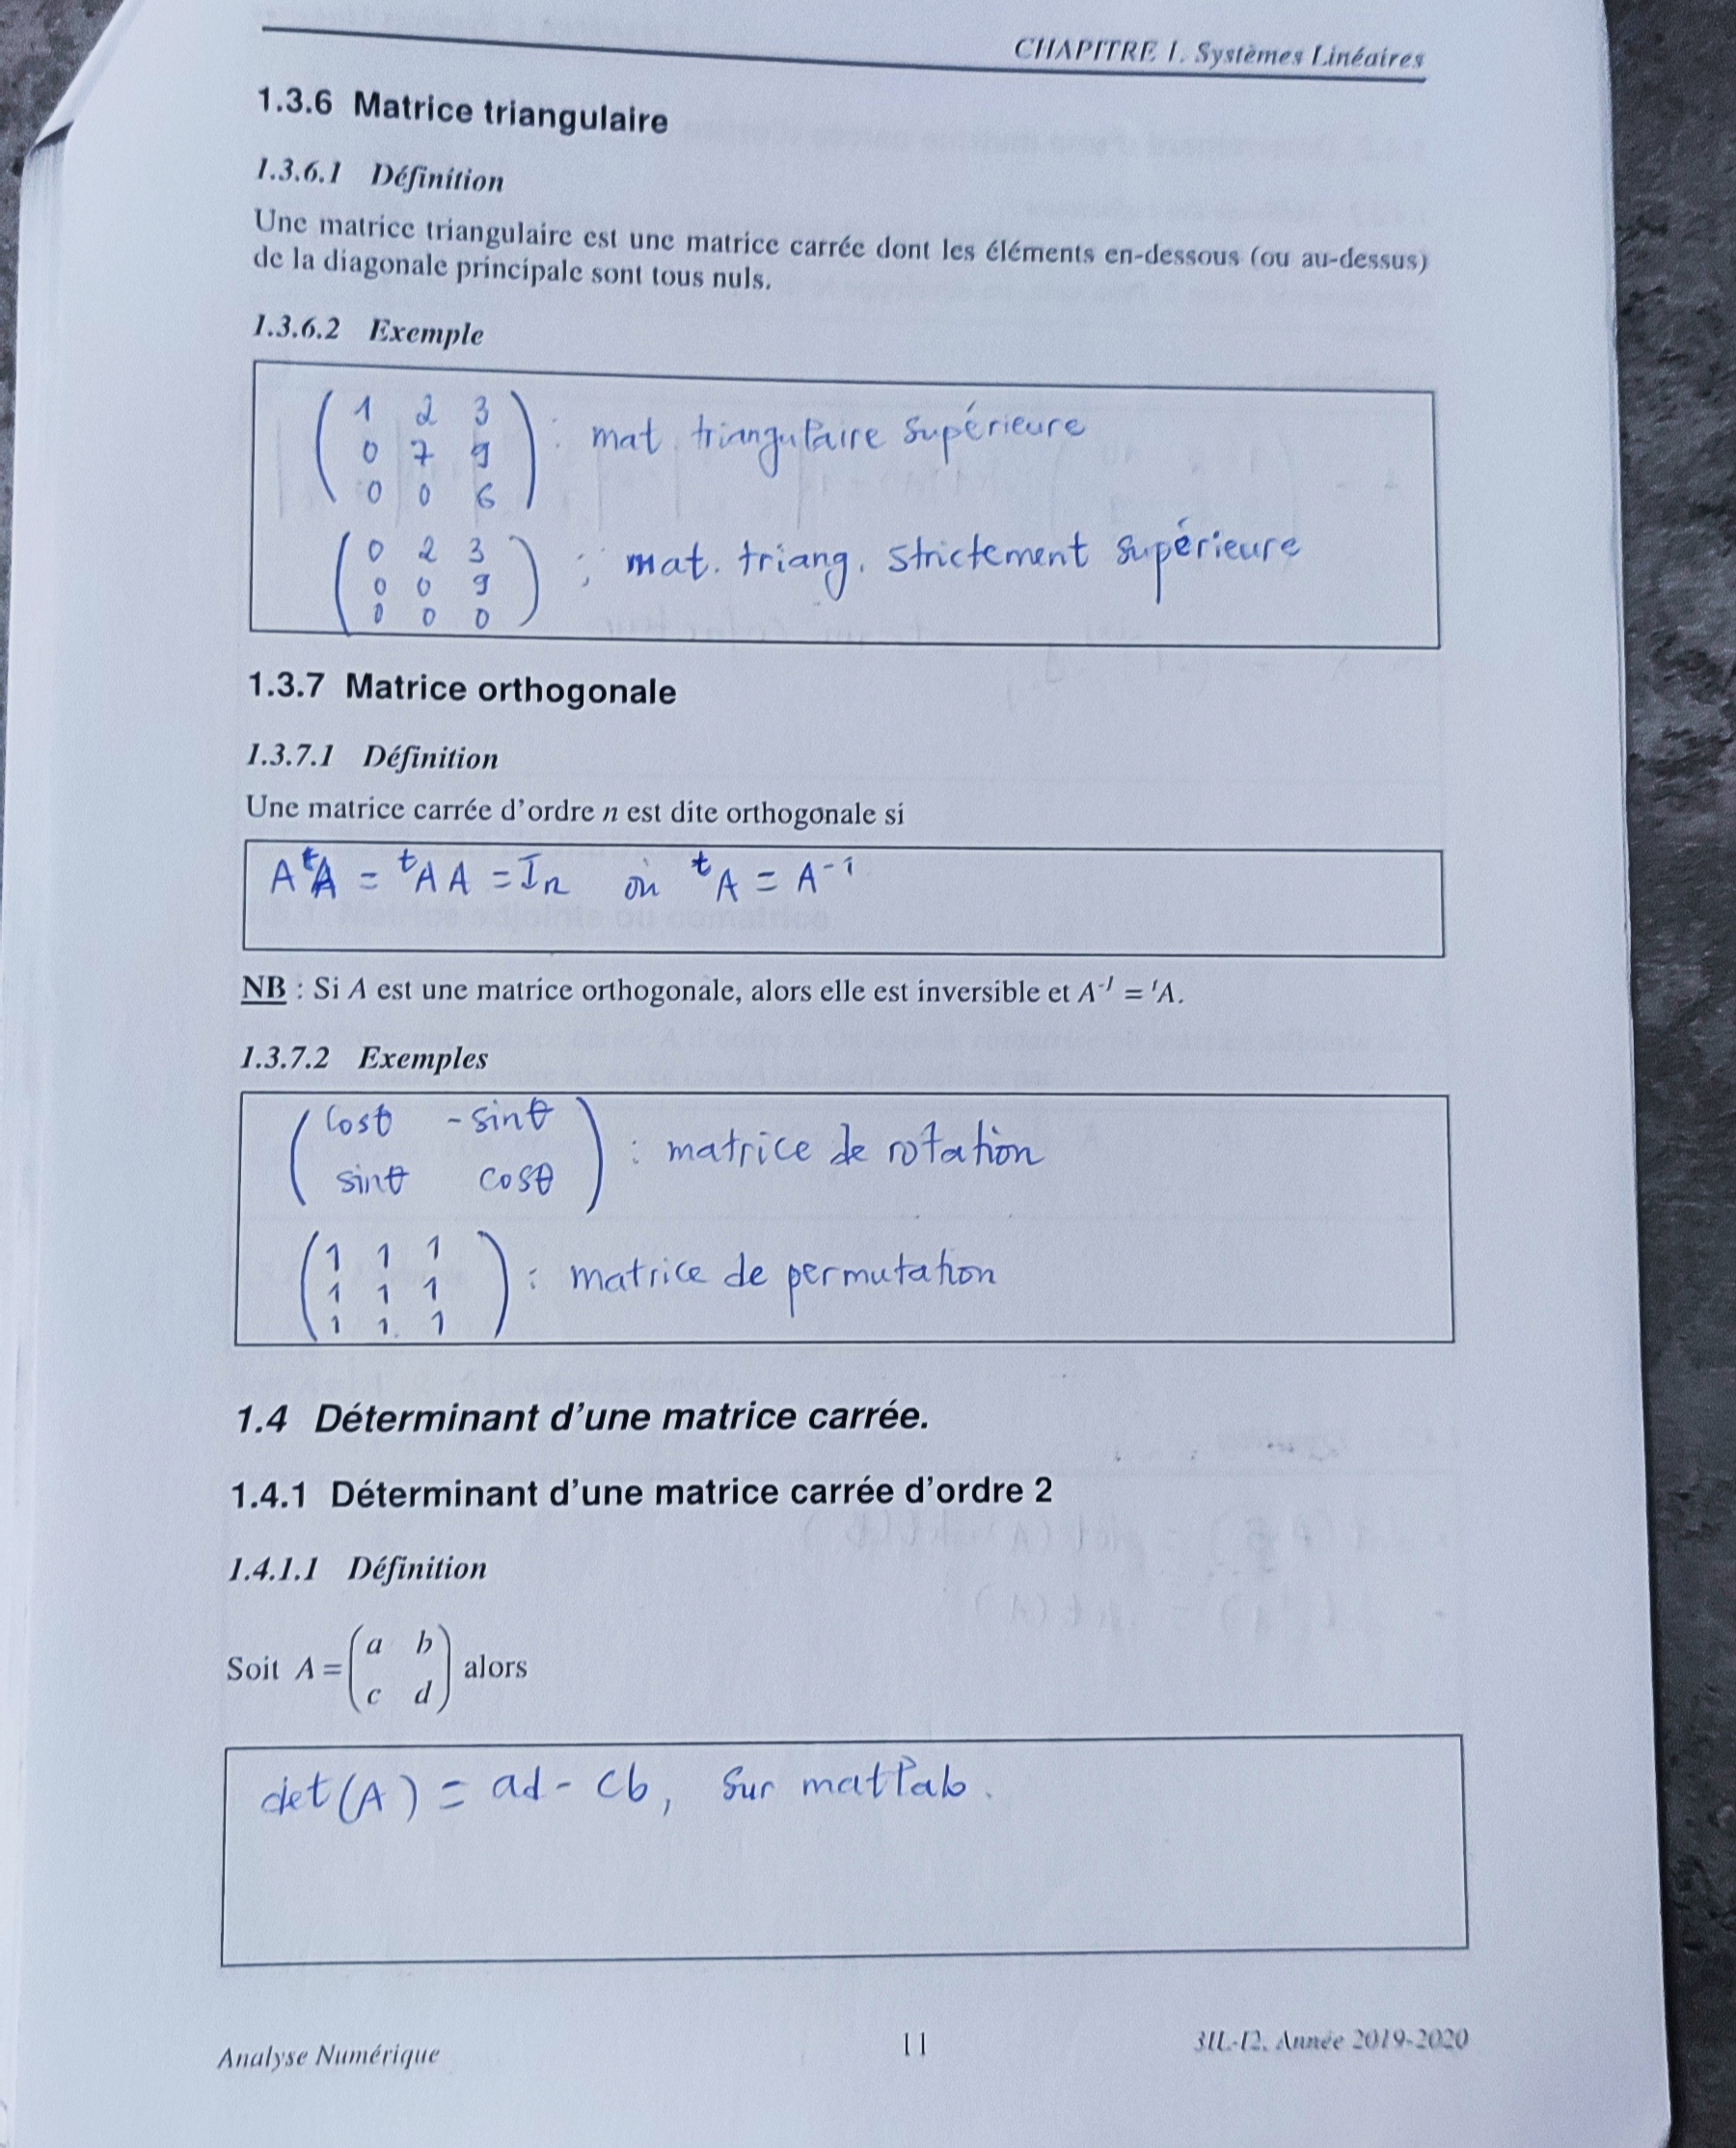 CHAPITRE 1. Systèmes Linéaires
1.3.6 Matrice triangulaire
1.3.6.1 Définition
Une matrice triangulaire est une matrice carrée dont les éléments en-dessous (ou au-dessus)
de la diagonale principale sont tous nuls.
1.3.6.2 Exemple
1 2 3
0 7 9 : mat. triangulaire supérieure
0 0 6
0 2 3
0 0 9 ; mat. triang. strictement supérieure
0 0 0
1.3.7 Matrice orthogonale
1.3.7.1 Définition
Une matrice carrée d'ordre n est dite orthogonale si
A ᵗA = ᵗA A = Iₙ où ᵗA = A⁻¹
NB : Si A est une matrice orthogonale, alors elle est inversible et A⁻¹ = ᵗA.
1.3.7.2 Exemples
cosθ -sinθ
sinθ cosθ : matrice de rotation
1 1 1
1 1 1 : matrice de permutation
1 1 1
1.4 Déterminant d'une matrice carrée.
1.4.1 Déterminant d'une matrice carrée d'ordre 2
1.4.1.1 Définition
Soit A = (a b
c d) alors
det(A) = ad - cb, sur matlab.
Analyse Numérique 11 3IL-I2, Année 2019-2020